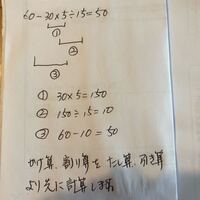 60-30×5÷15=50
①
②
③
① 30×5=150
② 150÷15=10
③ 60-10=50
かけ算、割り算を たし算、引き算
より先に計算します。